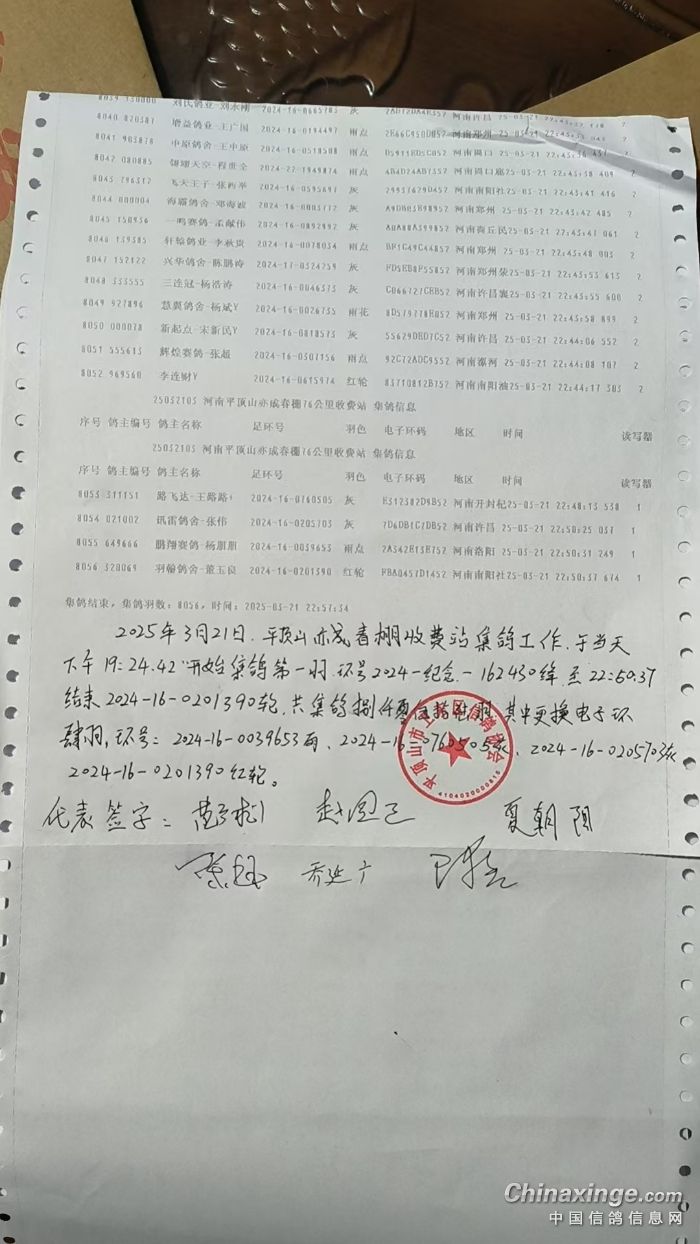 8039 130000 刘氏鸽业-刘永刚 2024-16-0665783 灰
8040 820381 增益鸽业-王广国 2024-16-0194497 雨点 河南郑州
8041 903878 中原鸽舍-王中原 2024-16-0518508 雨点 河南周口 25-03-21 22:43:36 437 2
8042 080885 翱翔天空-程世全 2024-22-1949874 雨点 25-03-21 22:43:38 409 2
8043 796317 飞天王子-张西举 2024-16-0595697 灰 河南南阳社 25-03-21 22:43:41 416 2
8044 000004 海霸鸽舍-邓海波 2024-16-0003712 灰 河南郑州 25-03-21 22:43:42 485 2
8045 150936 一鸣赛鸽-孟献伟 2024-16-0892992 灰 河南商丘民 25-03-21 22:43:47 061 2
8046 139385 轩翰鸽业-李秋岚 2024-16-0078034 雨点 BF1C49C44852 河南郑州 25-03-21 22:43:48 003 2
8047 152122 兴华鸽舍-陈鹏涛 2024-17-0324759 灰 FD5EB8F55852 河南郑州荥 25-03-21 22:43:53 613 2
8048 333555 三连冠-杨浩涛 2024-16-0046373 灰 C066727CEB52 河南许昌襄 25-03-21 22:43:55 600 2
8049 927896 慧翼鸽舍-杨斌Y 2024-16-0026735 雨花 8D579778E052 河南郑州 25-03-21 22:43:58 899 2
8050 000078 新起点-宋新民Y 2024-16-0818573 灰 55629DED7C52 河南许昌 25-03-21 22:44:06 552 2
8051 555613 辉煌赛鸽-张超 2024-16-0307156 雨点 92C72ADC9552 河南漯河 25-03-21 22:44:08 107 2
8052 969560 李连财Y 2024-16-0615974 红轮 83710812B752 河南南阳油 25-03-21 22:44:17 303 2
25032103 河南平顶山亦成春棚76公里收费站 集鸽信息
序号 鸽主编号 鸽主名称 足环号 羽色 电子环码 地区 时间 读写器
25032103 河南平顶山亦成春棚76公里收费站 集鸽信息
序号 鸽主编号 鸽主名称 足环号 羽色 电子环码 地区 时间 读写器
8053 311151 路飞达-王路路+ 2024-16-0760505 灰 E312382D9B52 河南开封杞 25-03-21 22:48:13 538 1
8054 021002 讯雷鸽舍-张伟 2024-16-0205703 灰 7D6DB1C7DB52 河南许昌 25-03-21 22:50:25 037 1
8055 649666 鹏翔赛鸽-杨朋朋 2024-16-0039653 雨点 2A342E13E752 河南洛阳 25-03-21 22:50:31 249 1
8056 320069 羽翰鸽舍-董玉良 2024-16-0201390 红轮 FBA0457D1452 河南南阳社 25-03-21 22:50:37 674 1
集鸽结束，集鸽羽数：8056，时间：2025-03-21 22:57:34
2025年3月21日，平顶山亦成春棚收费站集鸽工作，于当天
下午19:24.42开始集鸽第一羽.环号2024-纪念-162430绛 至22:50.37
结束2024-16-0201390轮，共集鸽捌仟零伍拾陆羽，其中更换电子环
肆羽，环号：2024-16-0039653雨、2024-16-0760505灰、2024-16-0205703灰
2024-16-0201390红轮。
代表签字：夏朝阳
乔延广
4104020000816
Chinaxinge.com
中国信鸽信息网